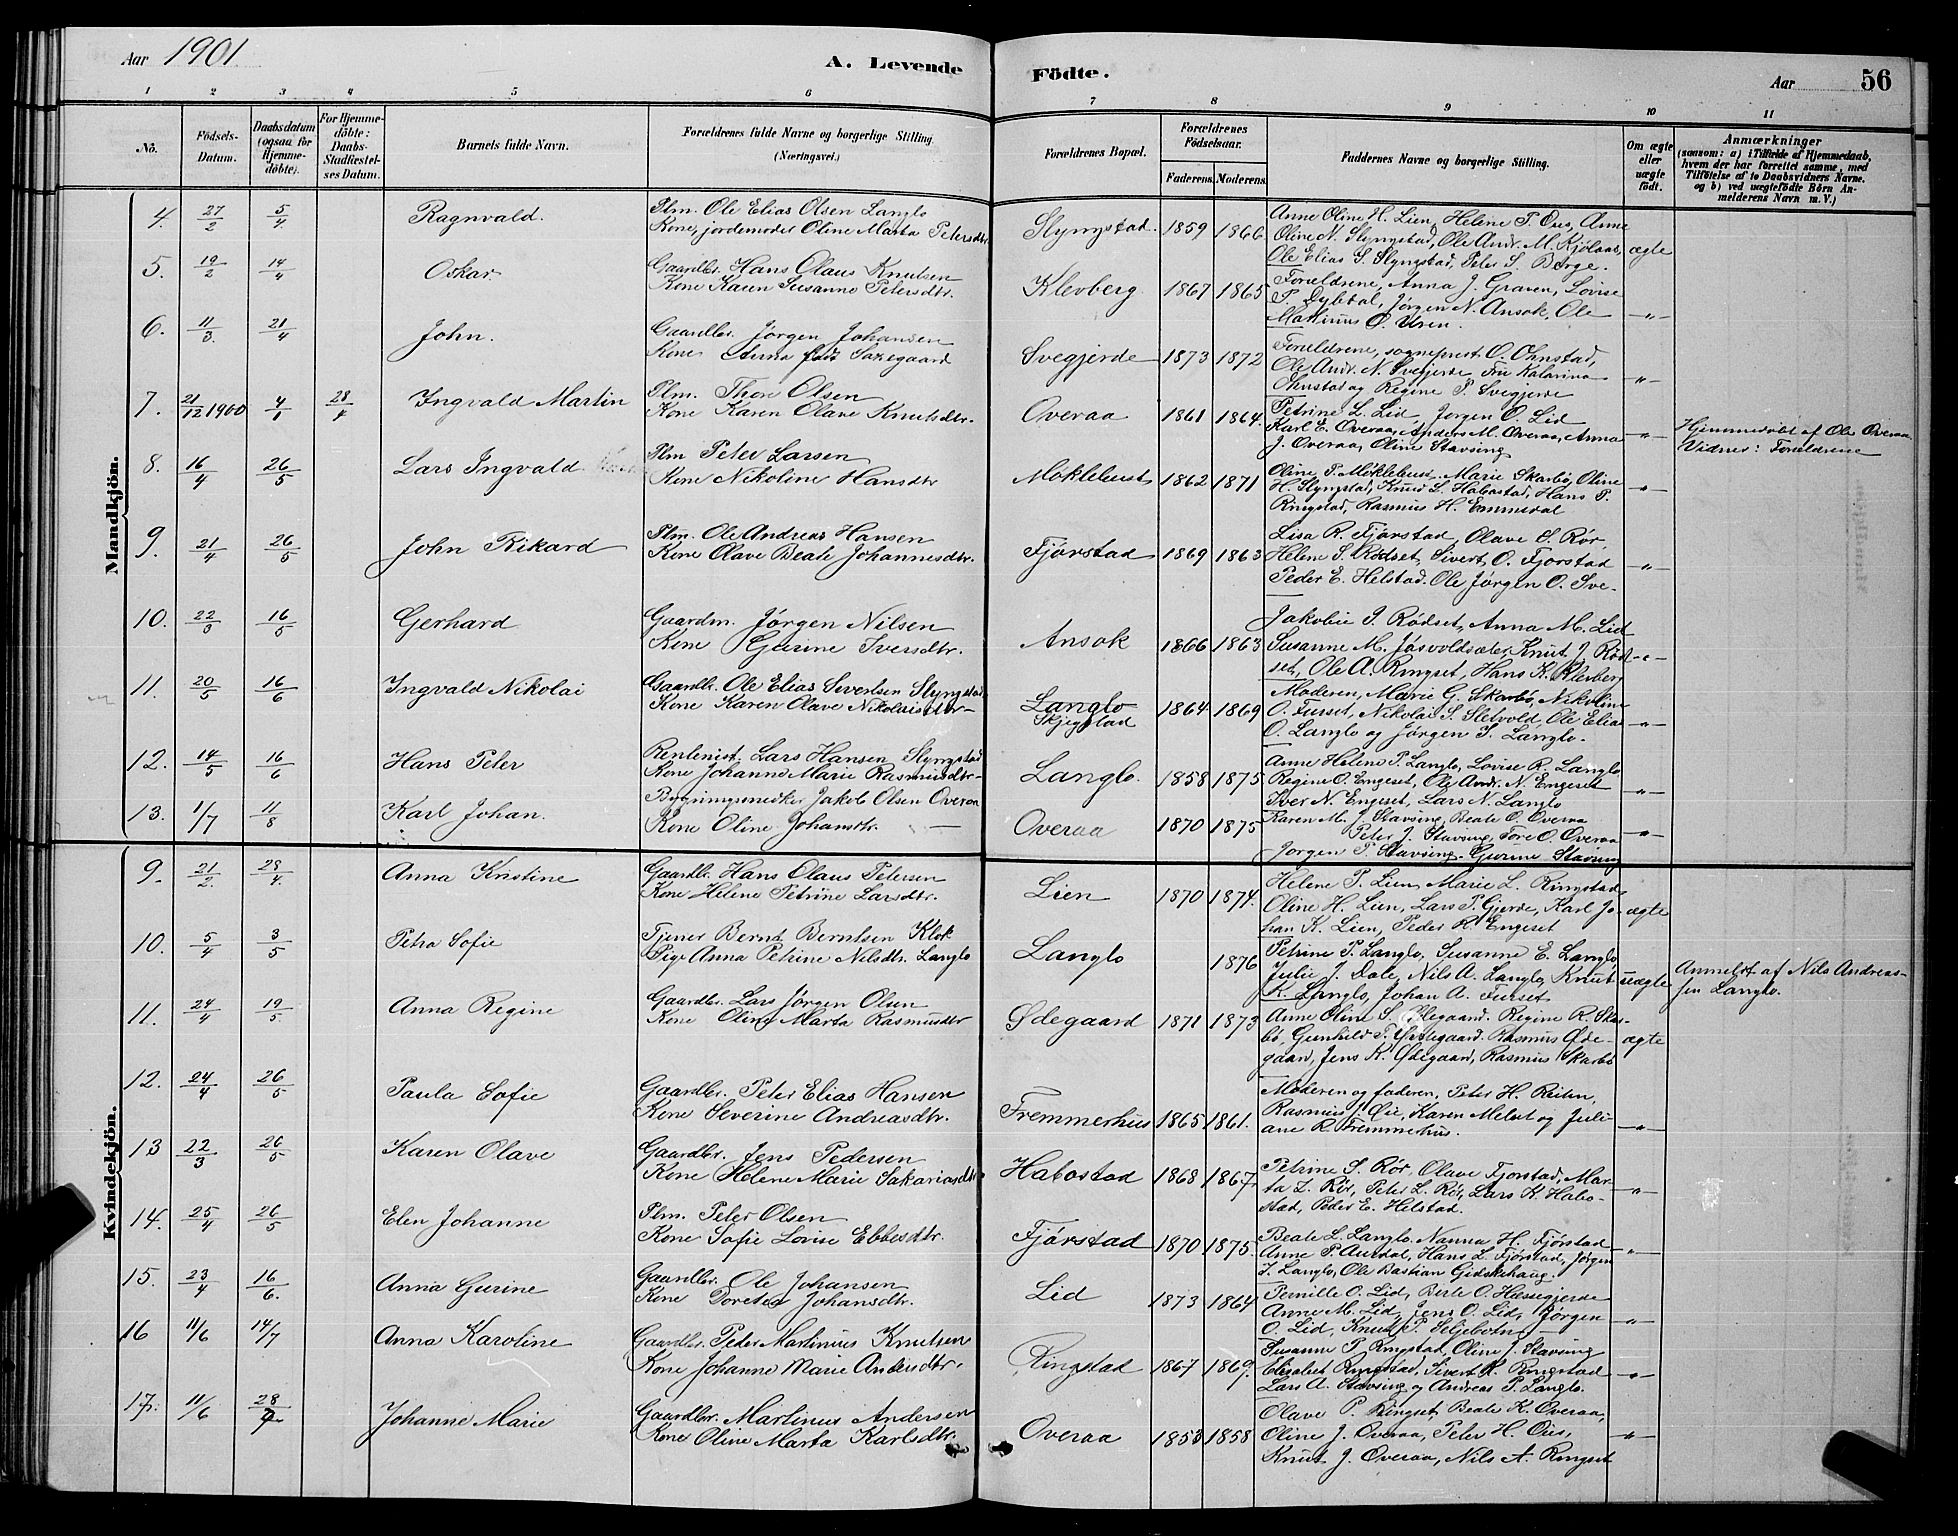 Aar 1901
A. Levende Födte.
Aar 56
1 2 3 4 5 6 7 8 9 10 11
No.
Födsels-Datum.
Daabsdatum (ogsaa for Hjemmedöbte).
For Hjemmedöbte: Daabs-Stadfæstelses Datum.
Barnets fulde Navn.
Forældrenes fulde Navne og borgerlige Stilling (Næringsvei.)
Forældrenes Bopæl.
Forældrenes Födselsaar.
Faderens. Moderens.
Faddernes Navne og borgerlige Stilling.
Om ægte eller uægte födt.
Anmærkninger (saasom: a) i Tilfælde af Hjemmedaab, hvem der har forrettet samme, med Tilföielse af to Daabsvidners Navne. og b) ved uægtefödte Börn Anmelderens Navn m. V.)
Mandkjön.
4. 27/2 5/4 Ragnvald. Plm. Ole Elias Olsen Langlo
Kone, jordemoder Oline Marta Petersdtr. Slyngstad. 1859 1866. Anne Oline H. Lien, Helene P. Øies, Anne
Oline N. Slyngstad, Ole Andr. M. Kjølaas, ægte
Ole Elias S. Slyngstad, Peter S. Borge.
5. 19/2 14/4 Oskar. Gaardbr. Hans Olaus Knutsen
Kone Karen Susanne Petersdtr. Klevberg 1867 1865 Forældrene, Anna J. Graven, Lovise
P. Dybdal, Jørgen N. Ansok, Ole -"-
Martinus O. Uren.
6. 11/3 21/4 John. Gaardbr. Jørgen Johansen
Kone Anna født Sakegaard Svegjerde 1873 1872 Forældrene, sogneprest O. Ohnstad,
Ole Andr. N. Svegjerde Fru Katarina -"-
Ohnstad og Regine P. Svegjerde
7. 21/12 1900 4/1 28/4 Ingvald Martin Plm. Thore Olsen
Kone Karen Olave Knutsdtr. Overaa 1861 1864. Petrine L. Lid Jørgen O. Lid
Karl E. Overaa, Anders M. Overaa, Anna -"- Hjemmedøbt af Ole Overaa
J. Overaa, Oline Stavsing Vidner: Forældrene
8. 16/4 26/5 Lars Ingvald Plm Peter Larsen
Kone Nikoline Hansdtr Møklebust 1862 1871 Oline P. Møklebust, Marie Skarbø, Oline
H. Slyngstad, Knut L. Habostad, Hans P. -"-
Ringstad, Rasmus H. Emmedal
9. 21/4 26/5 John Rikard Plm. Ole Andreas Hansen
Kone Olave Beate Johannesdtr. Fjørstad 1869 1863 Lisa R. Fjørstad, Olave S. Rør,
Helene S. Rødset, Sivert O. Fjørstad -"-
Peder E. Helstad. Ole Jørgen O. Sve-
10. 22/3 16/5 Gerhard Gaardm. Jørgen Nilsen
Kone Gurine Iversdtr. Ansok 1866 1863 Jakobie I. Rødset, Anna M. Lid
Susanne M. Jøsvoldsæter, Knut J. Rød -"-
set, Ole A. Ringset, Hans K. Klevberg
11. 20/5 16/6 Ingvald Nikolai Gaardbr. Ole Elias Severtsen Slyngstad
Kone Karen Olave Nikolaisdtr- Langlo Skjegstad 1864 1869 Moderen, Marie G. Skarbø, Nikoline
O. Furset, Nikolai S. Sletvold, Ole Elias -"-
O. Langlo og Jørgen S. Langlo.
12. 14/5 16/6 Hans Peter Rentenist. Lars Hansen Slyngstad
Kone Johanne Marie Rasmusdtr- Langlo. 1858 1875 Anne Helene P. Langlo, Lovise R. Langlo,
Regine O. Engeset, Ole Andr. N. Engeset -"-
Iver N. Engeset, Lars N. Langlo
13. 1/7 11/8 Karl Johan. Bygningssnedker Jakob Olsen Overaa
Kone Oline Johansdtr. Overaa 1870 1875 Karen M. J. Stavsing, Beate O. Overaa
Peter J. Stavsing, Tore O. Overaa -"-
Jørgen P. Stavsing. Gurine Stavsing
Kvindekjön.
9. 21/2. 28/4. Anna Kristine Gaardb. Hans Olaus Petersen
Kone Helene Petrine Larsdtr. Lien 1870 1874. Helene P. Lien, Marie L. Ringstad
Oline H. Lien, Lars P. Gjerde, Karl Jo- ægte
han K. Lien, Peder H. Engeset
10. 5/4 3/5 Petra Sofie Tjener Bernt Berntsen Klok
Pige Anna Petrine Nilsdtr. Langlo Langlo 1876 Petrine P. Langlo, Susanne E. Langlo
Julie J. Dale, Nils A. Langlo, Knut uægte Anmeldt af Nils Andreas-
K. Langlo, Johan A. Furset sen Langlo.
11. 24/4 19/5 Anna Regine Gaardbr. Lars Jørgen Olsen
Kone Oline Marta Rasmusdtr Ødegaard 1871 1873 Anne Oline S. Ødegaard. Regine R. Skar-
bø, Gunhild T. Ødegaard. Rasmus Øde- ægte
gaard, Jens K. Ødegaard, Rasmus Skarbø
12. 24/4 26/5 Paula Sofie Gaardbr. Peter Elias Hansen
Kone Severine Andreasdtr. Fremmerhus 1865 1861. Moderen og faderen, Peter H. Reiten,
Rasmus J. Øie, Karen Melset og Juli-
ane R. Fremmerhus. -"-
13 22/3 26/5 Karen Olave Gaardbr. Jens Pedersen
Kone Helene Marie Sakariasdtr Habostad 1868 1867. Petrine S. Rør, Olave Fjørstad, Mar-
ta Z. Rør, Peter L. Rør, Lars K. Habo- -"-
stad, Peder E. Helstad.
14. 25/4 26/5 Elen Johanne Plm. Peter Olsen
Kone Sofie Lovise Ebbesdtr. Fjørstad 1870 1875. Beate L. Langlo, Nanna H. Fjørstad
Anne P. Aurdal, Hans L. Fjørstad, Jørgen -"-
I. Langlo, Ole Bastian Gidskehaug.
15. 23/4 16/6. Anna Gurine Gaardbr. Ole Johansen
Kone Dortea Johansdtr. Lid 1873 1864 Pernille O. Lid, Berte O. Hessegjerde
Anne M. Lid, Jens O. Lid, Jørgen -"-
O. Lid, Knud P. Seljebotn
16 11/6 14/7 Anna Karoline Gaardbr. Peder Martinius Knutsen
Kone Johanne Marie Andersdtr. Ringstad 1867 1869. Susanne P. Ringstad, Oline J. Stavsing
Elisabet Ringstad, Sivert K. Ringstad -"-
Lars A. Stavsing og Andreas P. Langlo.
17. 11/6 28/7 Johanne Marie Gaardbr. Martinus Andersen
Kone Oline Marta Karlsdtr. Overaa 1853 1858 Olave P. Ringset, Beate K. Overaa,
Oline J. Overaa, Peter H. Øies, -"-
Knut J. Overaa, Nils A. Ringset